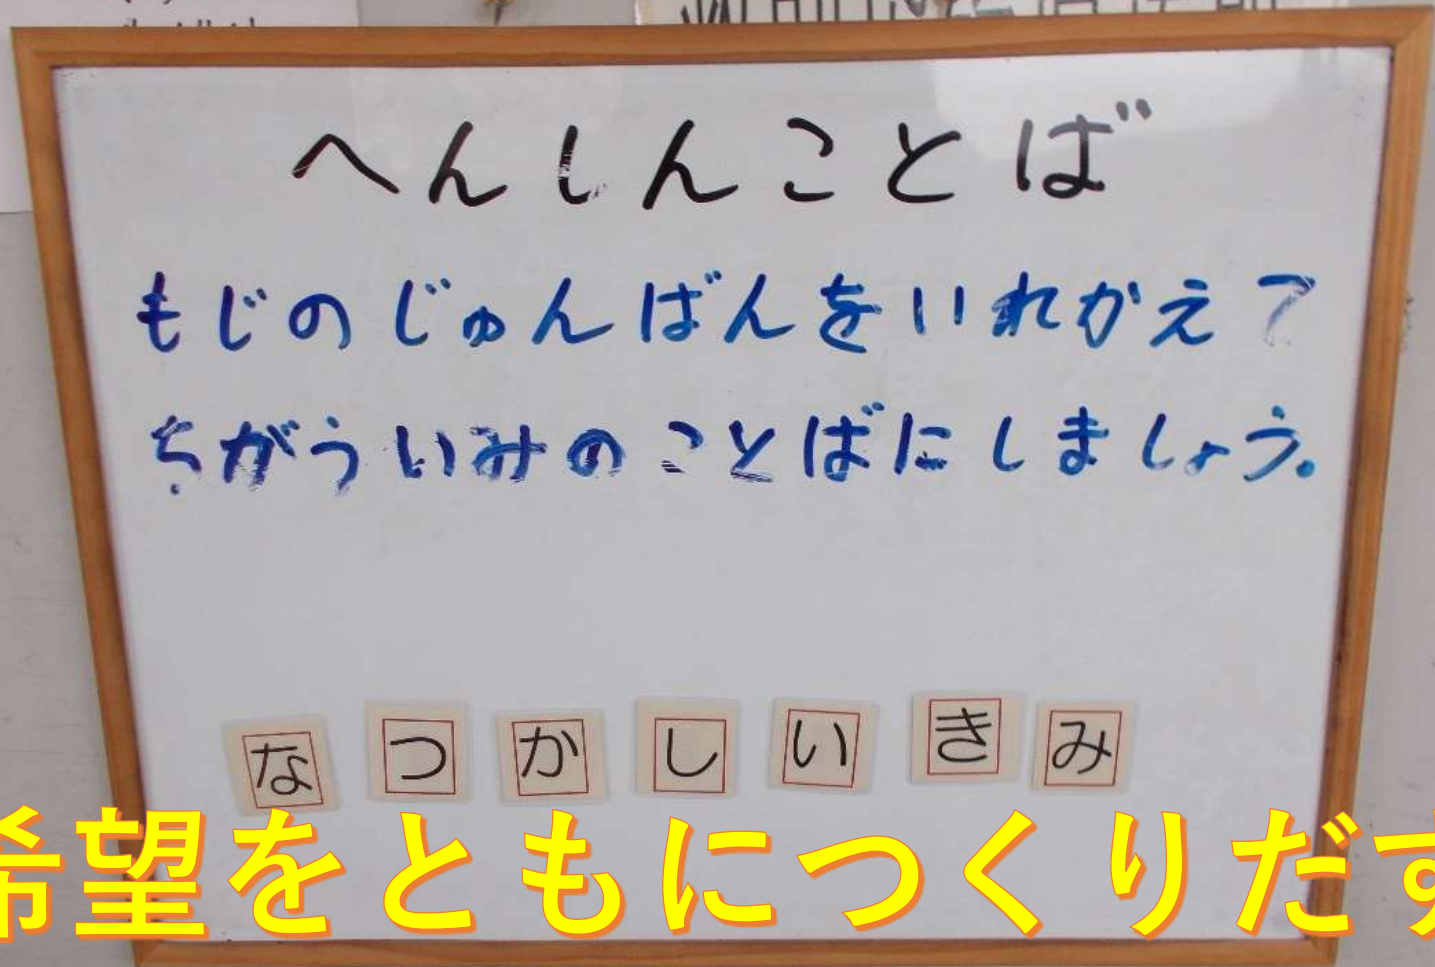 へんしんことば
もじのじゅんばんをいれかえて
ちがういみのことばにしましょう。
なつかしいきみ
希望をともにつくりだす